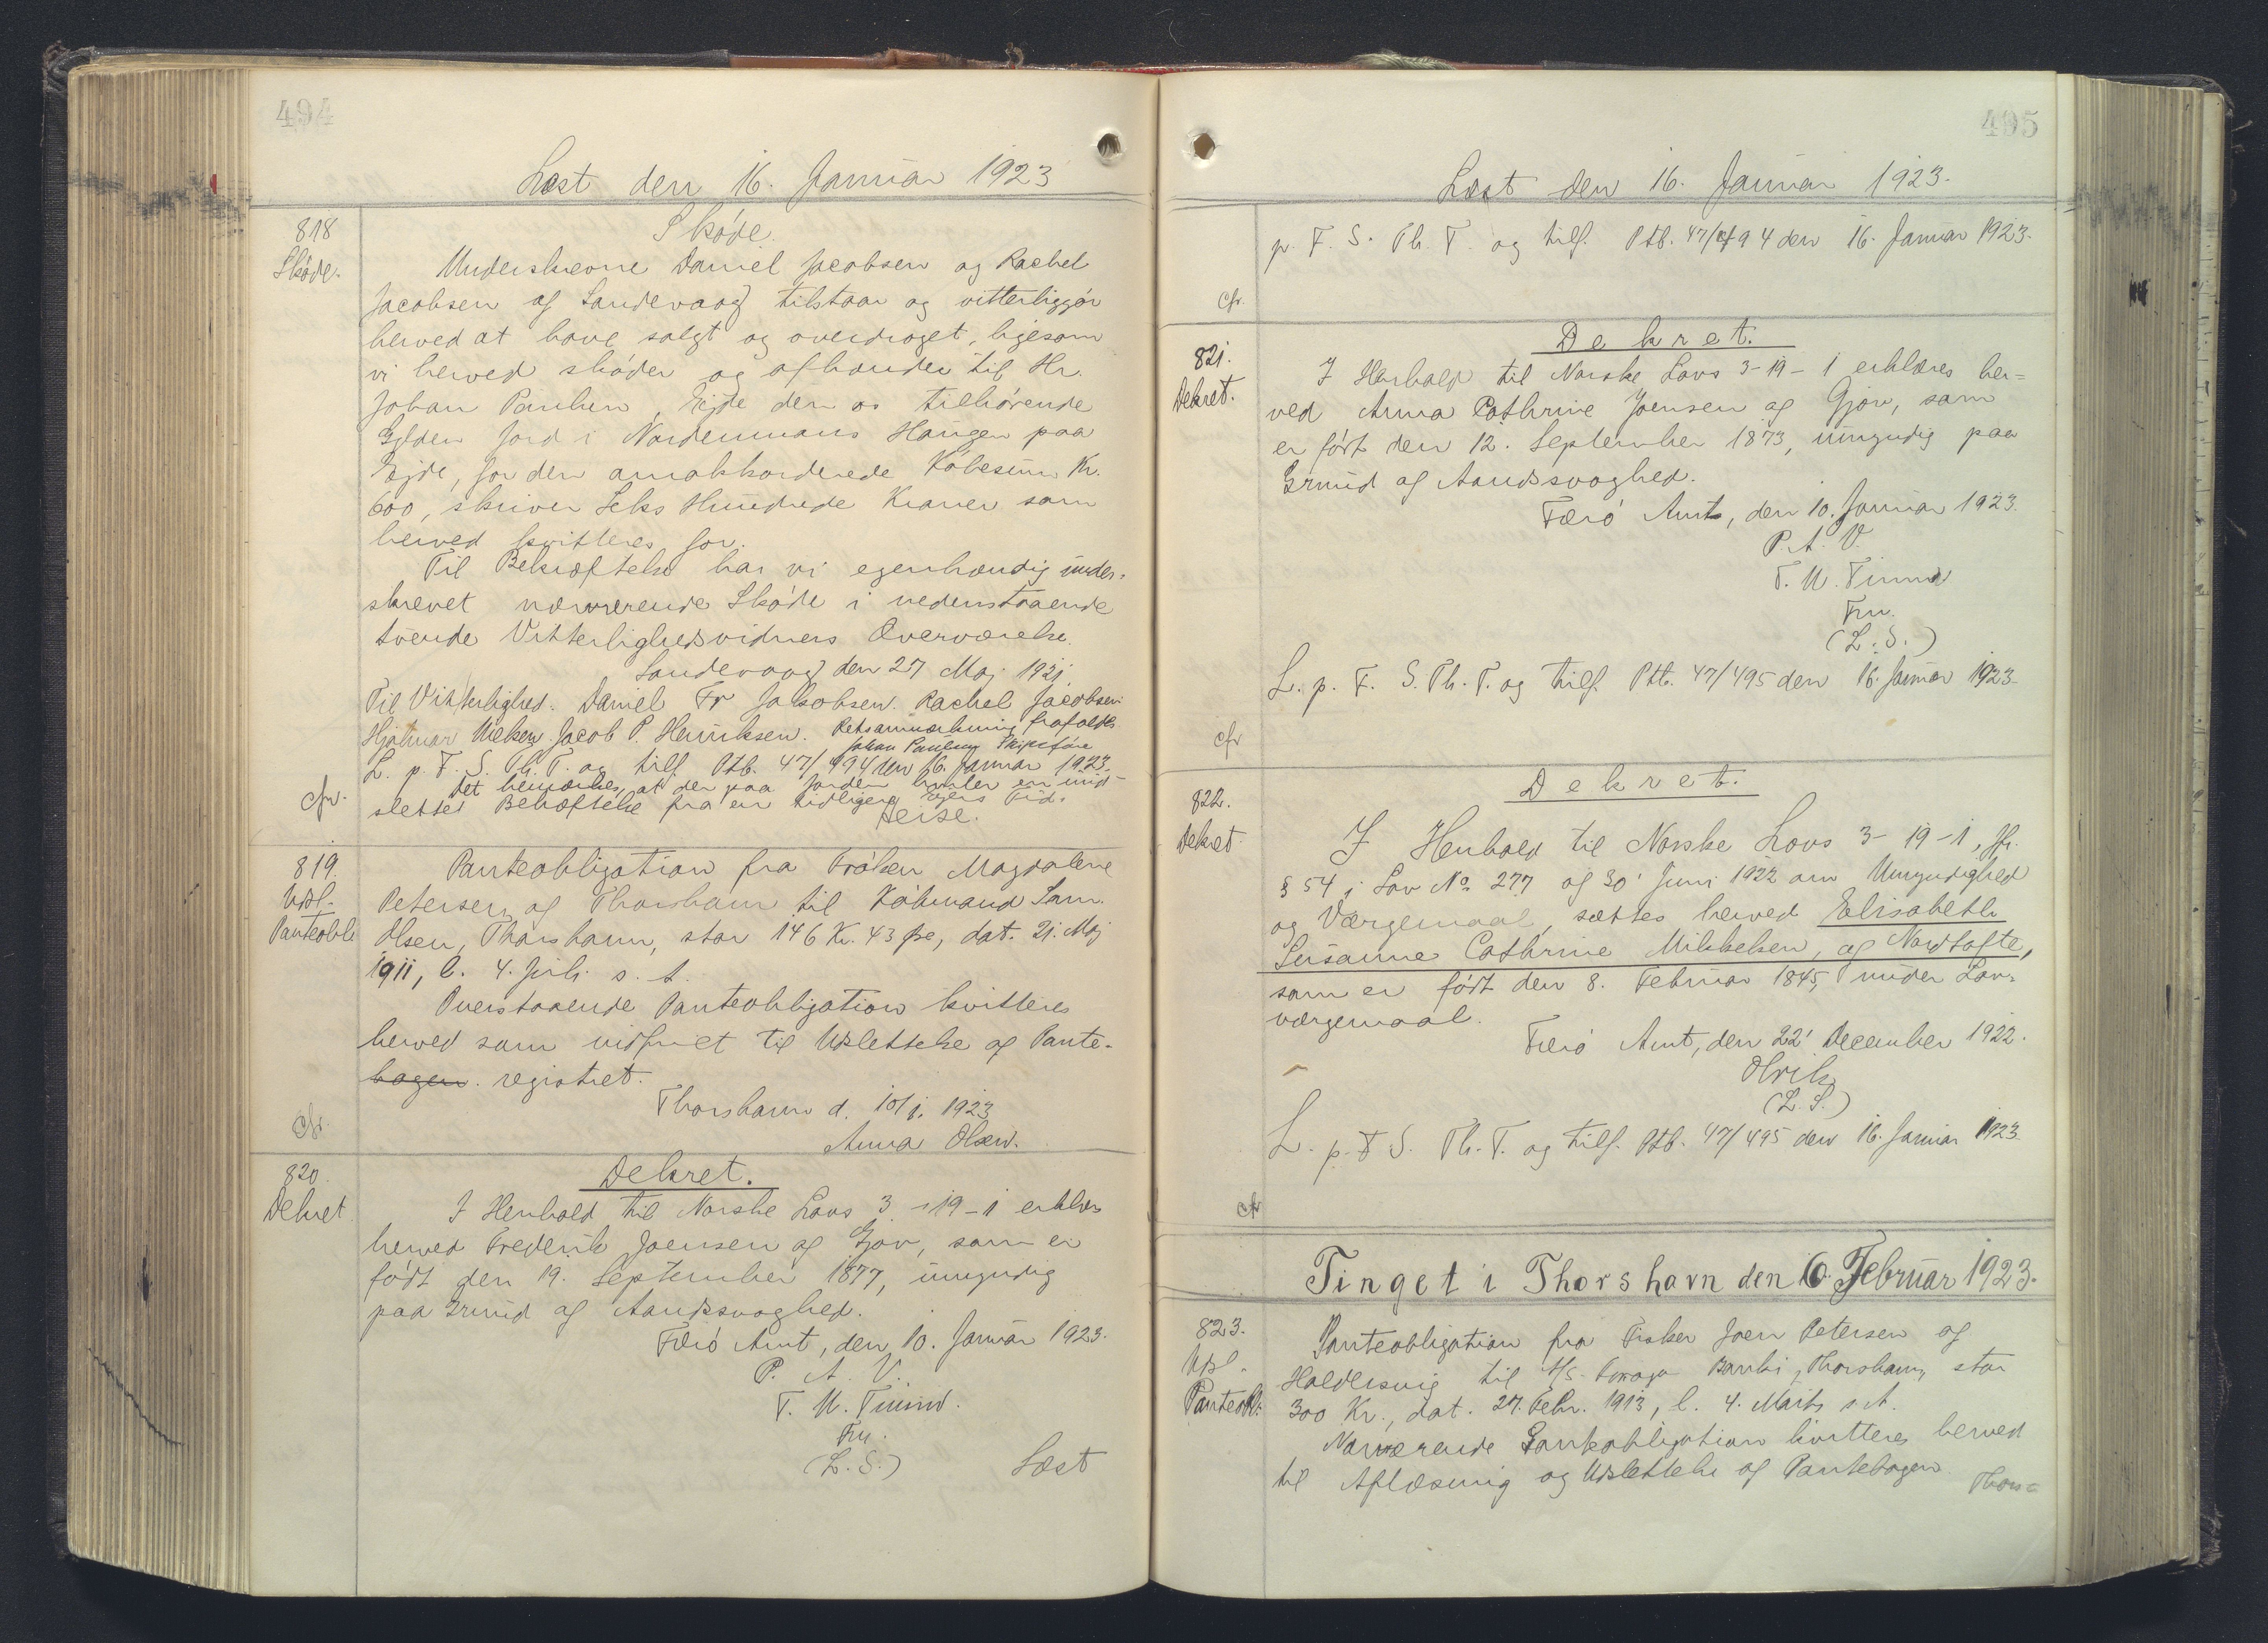 494
Læst den 16. Januar 1923
818
Skøde.
Skøde.
Underskrevne Daniel Jacobsen og Rachel
Jacobsen af Sandevaag tilstaar og vitterliggjør
herved at have solgt og overdraget, ligesom
vi herved skøder og afhænder til Hr.
Johan Paulsen, Ejde den os tilhørende
Gylden Jord i Nordenmans Haugen paa
Ejde, for den omakkorderede Købesum Kr.
600, skriver Seks Hundrede Kroner som
herved kvitteres for.
Til Bekræftelse har vi egenhændig under-
skrevet nærværende Skøde i nedenstaaende
tvende Vitterlighedsvidners Overværelse.
Sandevaag den 27 Maj 1921.
Til Vitterlighed. Daniel Fr Jakobsen. Rachel Jacobsen
Hjalmar Nielsen. Jacob P. Henriksen. Retsanmærkning frafaldes
Johan Paulsen Skipsfører
L. p. F. S. Th. T. og tilf. Ptb. 47/494 den 16. Januar 1923.
Det bemærkes, at der paa Jorden hæfter en uud-
slettet Behæftelse fra en tidligere Ejers Tid.
Heise.
cfr.
819.
Udsl.
Panteobl.
Panteobligation fra Frøken Magdalene
Petersen af Thorshavn til Købmand Sam.
Olsen, Thorshavn, stor 146 Kr. 43 Øre, dat. 21. Maj
1911, l. 4. Juli s. A.
Overstaaende Panteobligation kvitteres
herved som indfriet til Udslettelse af Pante-
bogen. registret.
Thorshavn d. 10/1. 1923
Anna Olsen.
cfr.
820.
Dekret
Dekret.
I Henhold til Norske Lovs 3-19-1 erklæres
herved Frederik Joensen af Gjov, som er
født den 19. September 1877, umyndig
paa Grund af Aandssvaghed.
Færø Amt, den 10. Januar 1923.
P. A. V.
T. U. Finnd.
Fm.
(L. S.)
Læst
495
Læst den 16. Januar 1923.
p. F. S. Th. T. og tilf. Ptb. 47/494 den 16. Januar 1923.
cfr.
821.
Dekret.
Dekret.
I Henhold til Norske Lovs 3-19-1 erklæres her=
ved Anna Cathrine Joensen af Gjov, som
er født den 12. September 1873, umyndig paa
Grund af Aandssvaghed.
Færø Amt, den 10. Januar 1923.
P. A. V.
T. U. Finnd
Fm.
(L. S.)
L. p. F. S. Th. T. og tilf. Ptb. 47/495 den 16. Januar 1923.
cfr
822.
Dekret
Dekret.
I Henhold til Norske Lovs 3-19-1, jfr.
§ 54 i Lov No 277 af 30' Juni 1922 om Umyndighed
og Værgemaal, sættes herved Elisabeth
Susanne Cathrine Mikkelsen, af Nordtofte,
som er født den 8. Februar 1845, under Lav-
værgemaal.
Færø Amt, den 22' December 1922.
Olrik
(L. S.)
L. p. F S. Th. T. og tilf. Ptb. 47/495 den 16. Januar 1923
cfr
Tinget i Thorshavn den 6. Februar 1923.
823.
Udsl.
Panteobl.
Panteobligation fra Fisker Joen Petersen af
Haldersvig til A/S. Føroya Banki, Thorshavn, stor
300 Kr., dat. 27. Febr. 1913, l. 4. Marts s. A.
Nærværende Panteobligation kvitteres herved
til Aflæsning og Udslettelse af Pantebogen.
Thors=